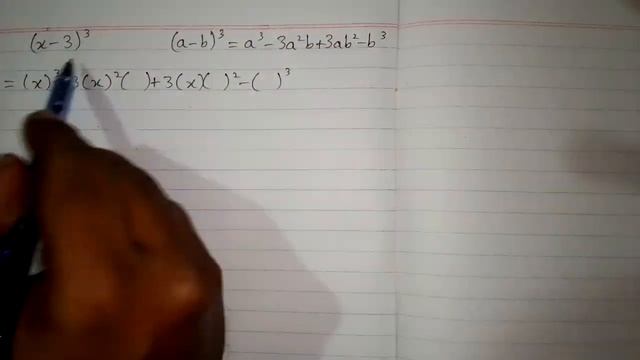 (x-3)³ (a-b)³ = a³-3a²b+3ab²-b³
= (x)³-3(x)²( )+3(x)( )²-( )³